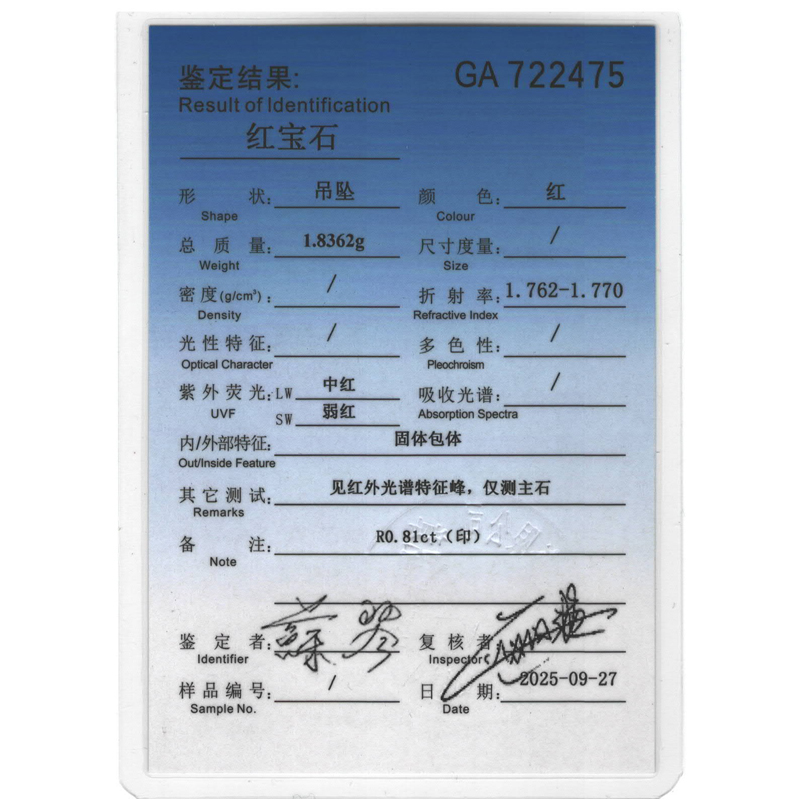 鉴定结果: GA 722475
Result of Identification
红宝石
形 状: 吊坠 颜 色: 红
Shape Colour
总 质 量: 1.8362g 尺寸度量: /
Weight Size
密度(g/cm³): / 折 射 率: 1.762-1.770
Density Refractive Index
光性特征: / 多 色 性: /
Optical Character Pleochroism
紫外荧光: LW 中红 吸收光谱: /
UVF SW 弱红 Absorption Spectra
内/外部特征: 固体包体
Out/Inside Feature
其它测试: 见红外光谱特征峰，仅测主石
Remarks
备 注: R0.81ct（印）
Note
鉴 定 者: 复 核 者
Identifier Inspector
样品编号: / 日 期: 2025-09-27
Sample No. Date